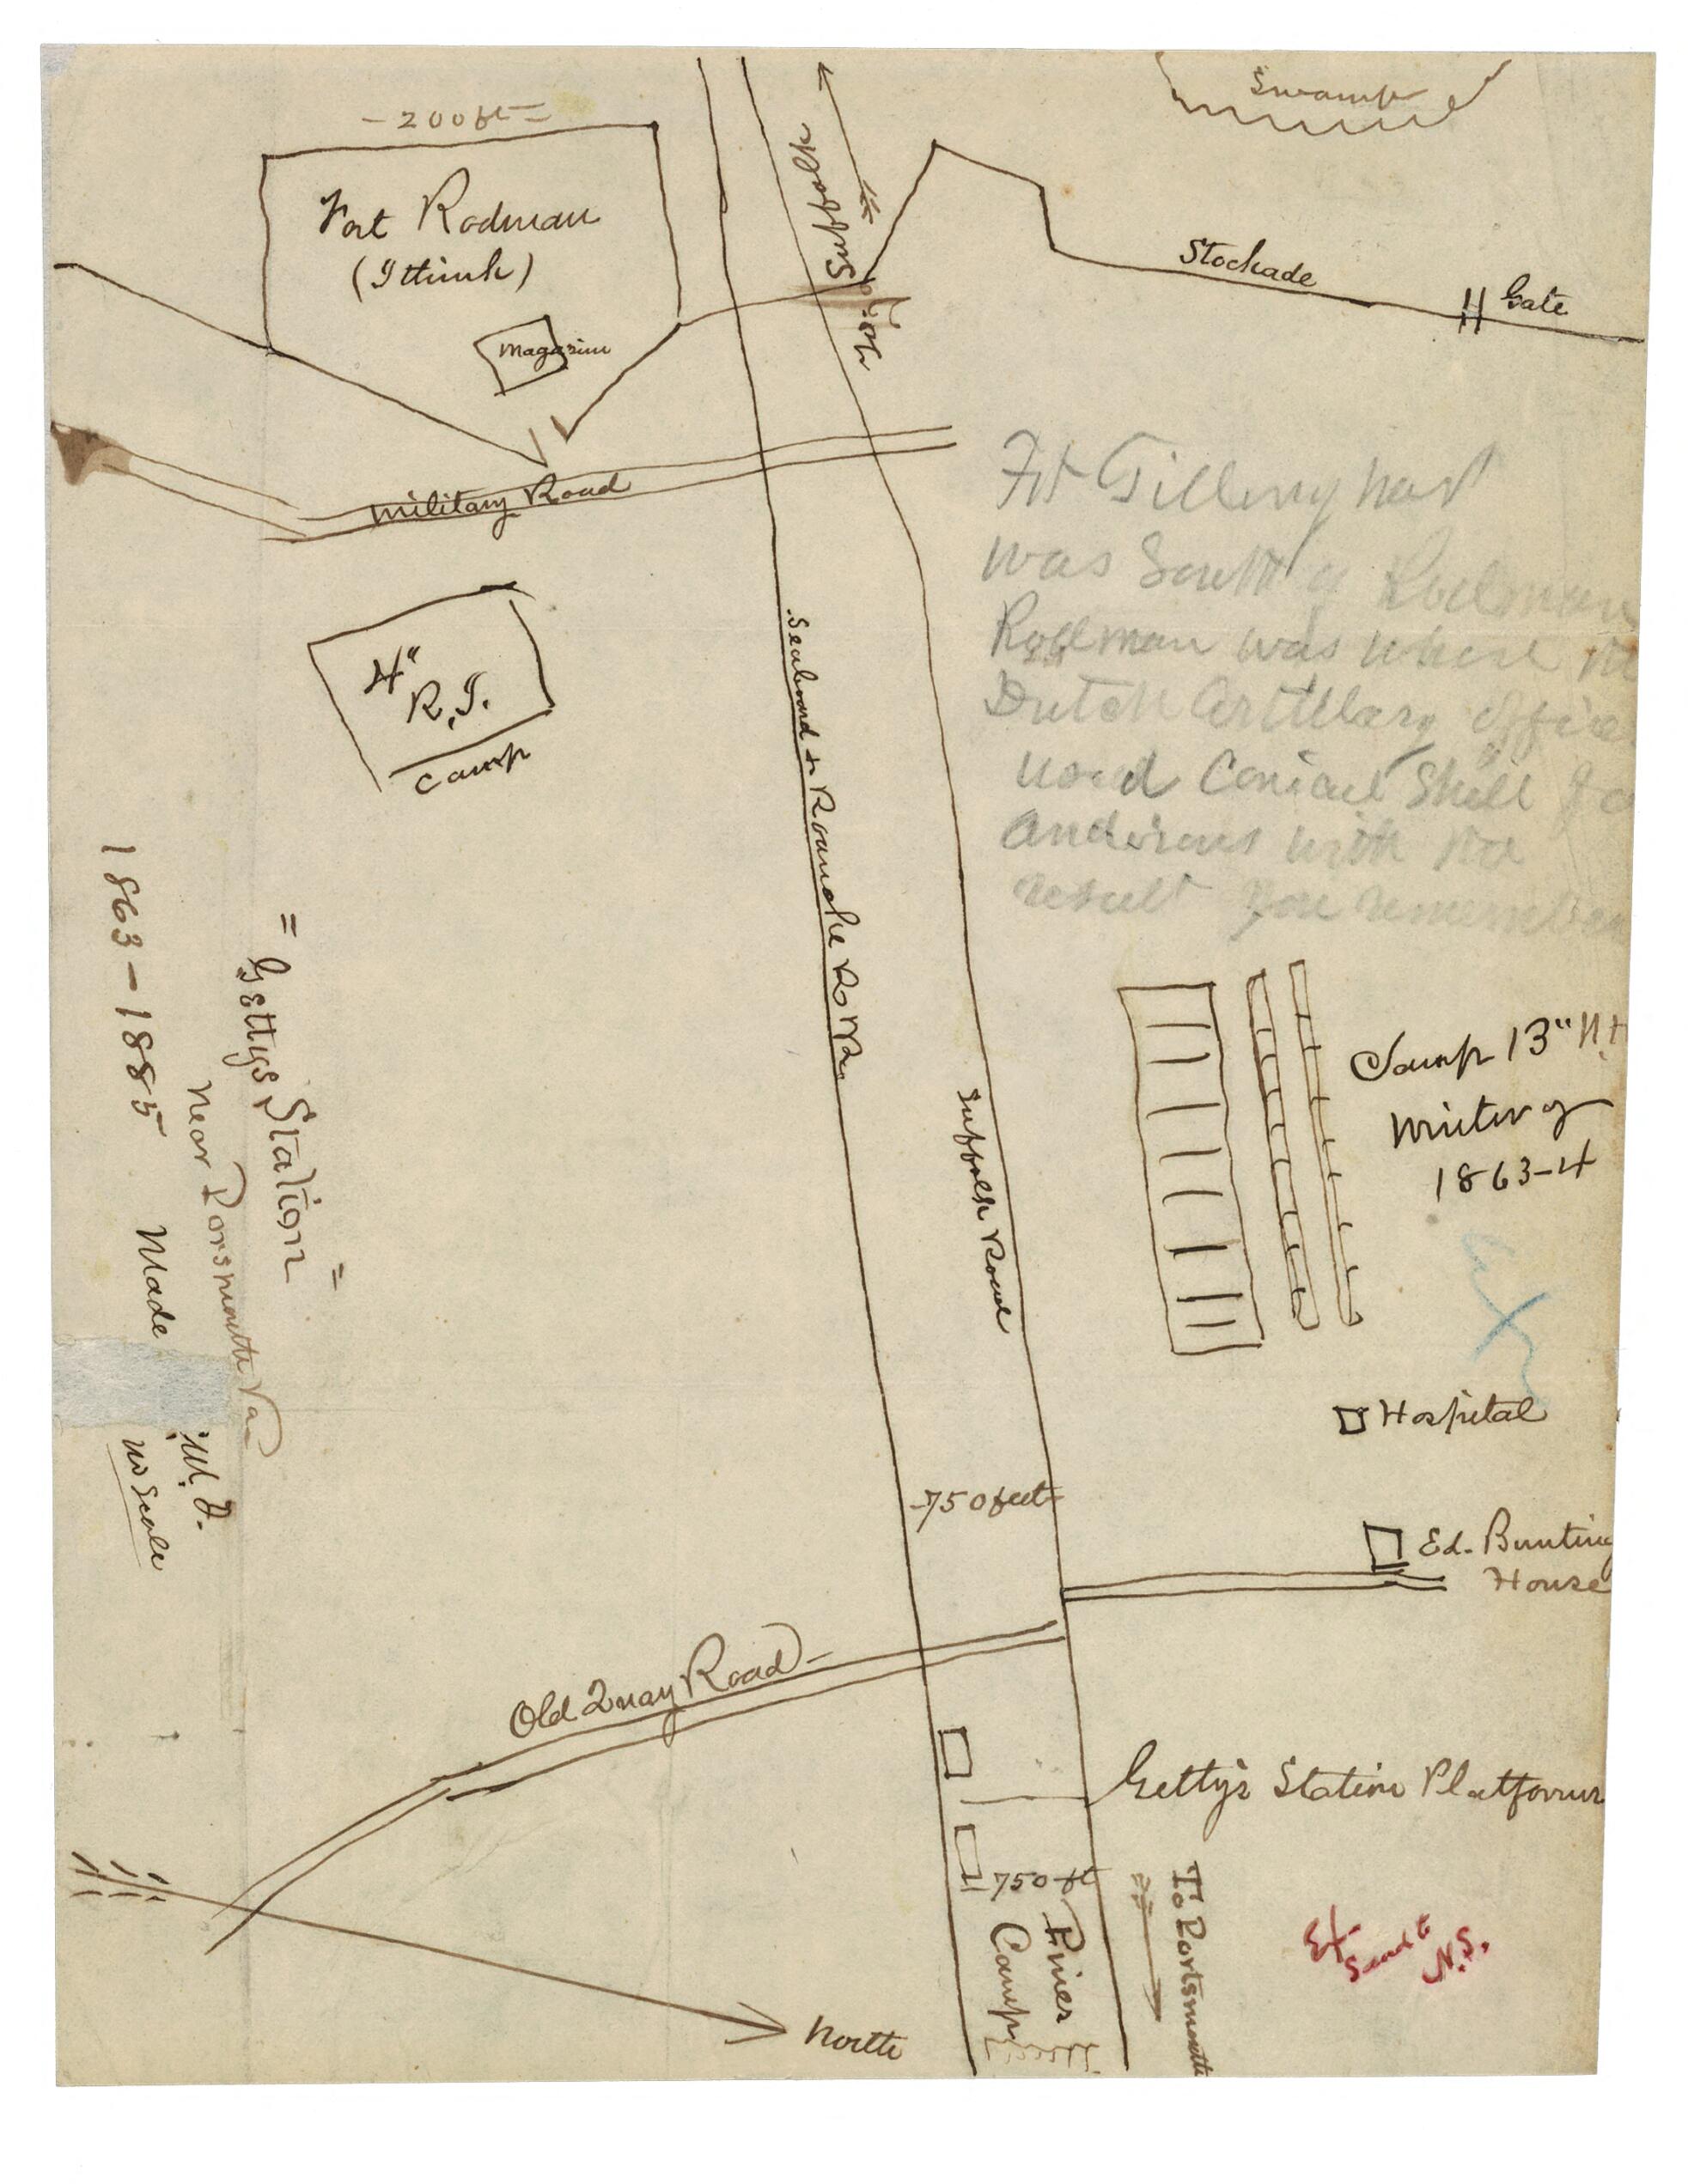 Swamp
-200ft=
Fort Rodman
(I think)
Magazine
To Suffolk
Stockade
Gate
Military Road
Ft Tillinghast
was South of Rodman
Rodman was where the
Dutch Artillery office
used Conical Shell
andirons with no
result you remember
4" R.I.
Camp
Seaboard & Roanoke R.R.
Suffolk Road
Camp 13" N.H
Winter of
1863-4
= Gettys Station =
Near Porsmouth Va
1863-1885 Made
no Scale
Hospital
-750 feet-
Ed. Bunting
House
Old Quay Road-
Getty's Station Platform
750 ft
Pines
Camp
To Portsmouth
Ex
Send to
N.S.
North